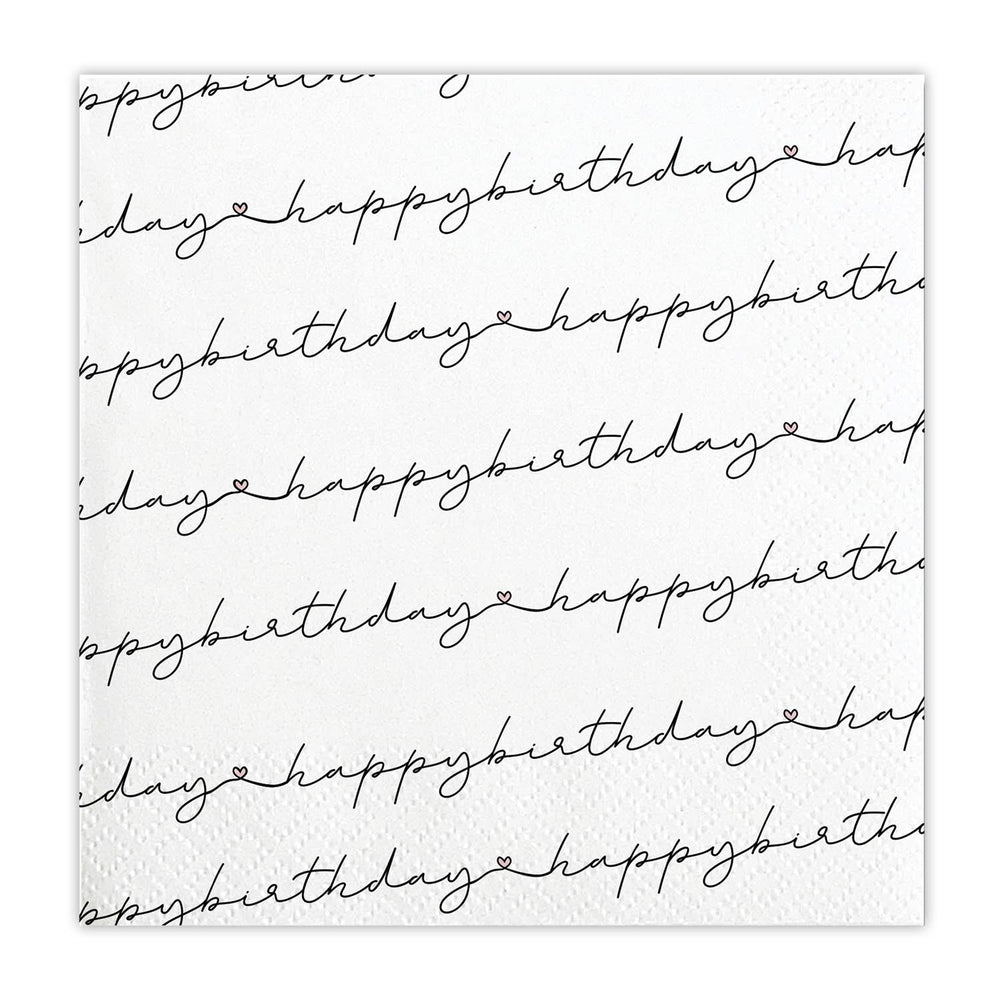 ppybirth
day happybirthday hap
ppybirthday happybirth
day happybirthday hap
ppybirthday happybirth
day happybirthday hap
ppybirthday happybirth